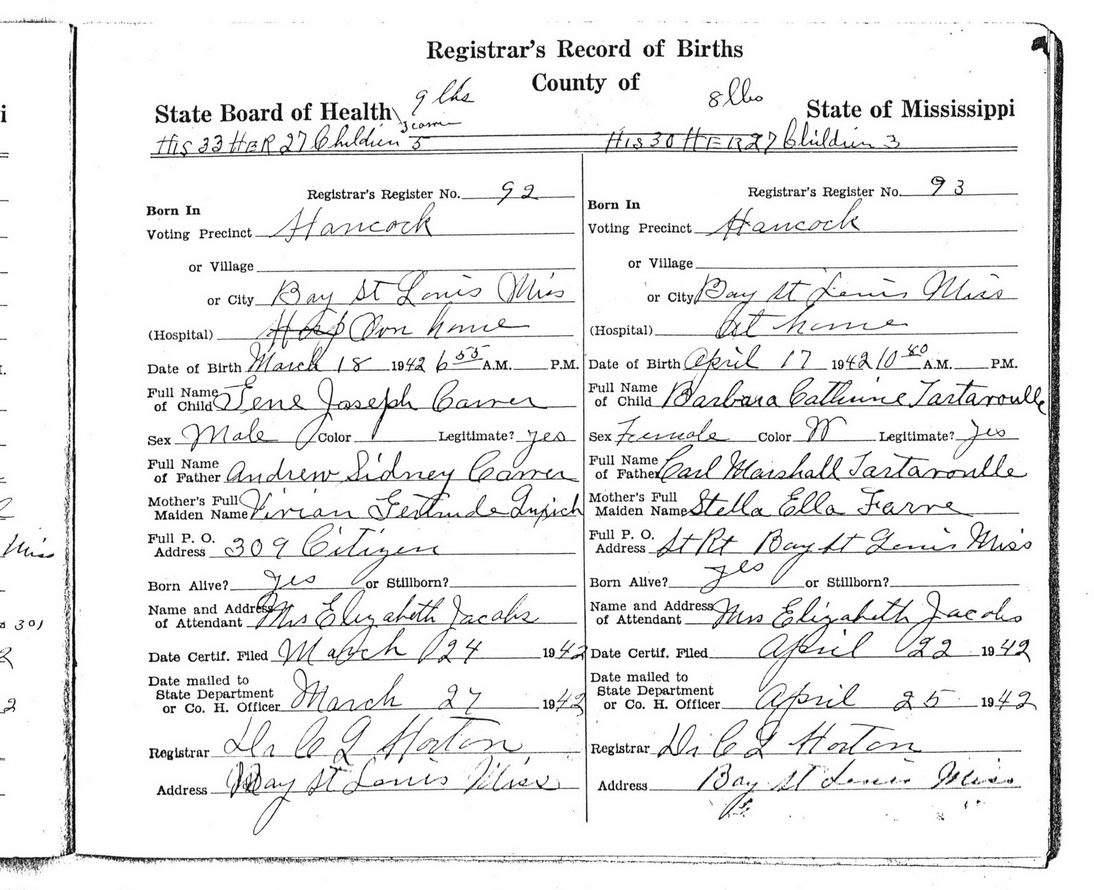 Registrar's Record of Births
County of
State Board of Health
State of Mississippi
9 lbs
8 lbs
HIS 33 HER 27 Children 5
HIS 30 HER 27 Children 3
Registrar's Register No. 92
Born In
Voting Precinct Hancock
or Village
or City Bay St Louis Miss
(Hospital) Hosp Own home
Date of Birth March 18 1942 6 55 A.M. P.M.
Full Name
of Child Gene Joseph Carver
Sex Male Color Legitimate? yes
Full Name
of Father Andrew Sidney Carver
Mother's Full
Maiden Name Vivian Gertrude
Full P. O.
Address 309 Citizen
Born Alive? yes or Stillborn?
Name and Address
of Attendant Mrs Elizabeth Jacobs
Date Certif. Filed March 24 1942
Date mailed to
State Department
or Co. H. Officer March 27 1942
Registrar Dr C L Horton
Address Bay St Louis Miss
Registrar's Register No. 93
Born In
Voting Precinct Hancock
or Village
or City Bay St Louis Miss
(Hospital) At home
Date of Birth April 17 1942 10 A.M. P.M.
Full Name
of Child Barbara Cathrine Tartavoulle
Sex Female Color W Legitimate? Yes
Full Name
of Father Carl Marshall Tartavoulle
Mother's Full
Maiden Name Stella Ella Farve
Full P. O.
Address St Rt Bay St Louis Miss
Born Alive? yes or Stillborn?
Name and Address
of Attendant Mrs Elizabeth Jacobs
Date Certif. Filed April 22 1942
Date mailed to
State Department
or Co. H. Officer April 25 1942
Registrar Dr C L Horton
Address Bay St Louis Miss
Miss
301
2